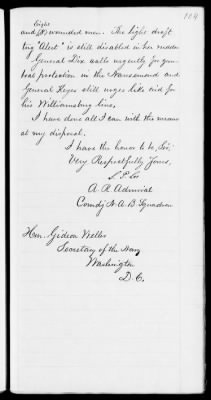 104
eight
and (8) wounded men. The light draft
tug "Alert" is still disabled in her rudder
General Dix calls urgently for gun
boat protection in the Nansemond and
General Keyes still urges like aid for
his Williamsburg line,
I have done all I can with the means
at my disposal.
I have the honor to be, Sir,
Very Respectfully Yours,
S. P. Lee
A. R. Admiral
Comdg N. A. B. Squadron
Hon. Gideon Welles
Secretary of the Navy
Washington
D. C.